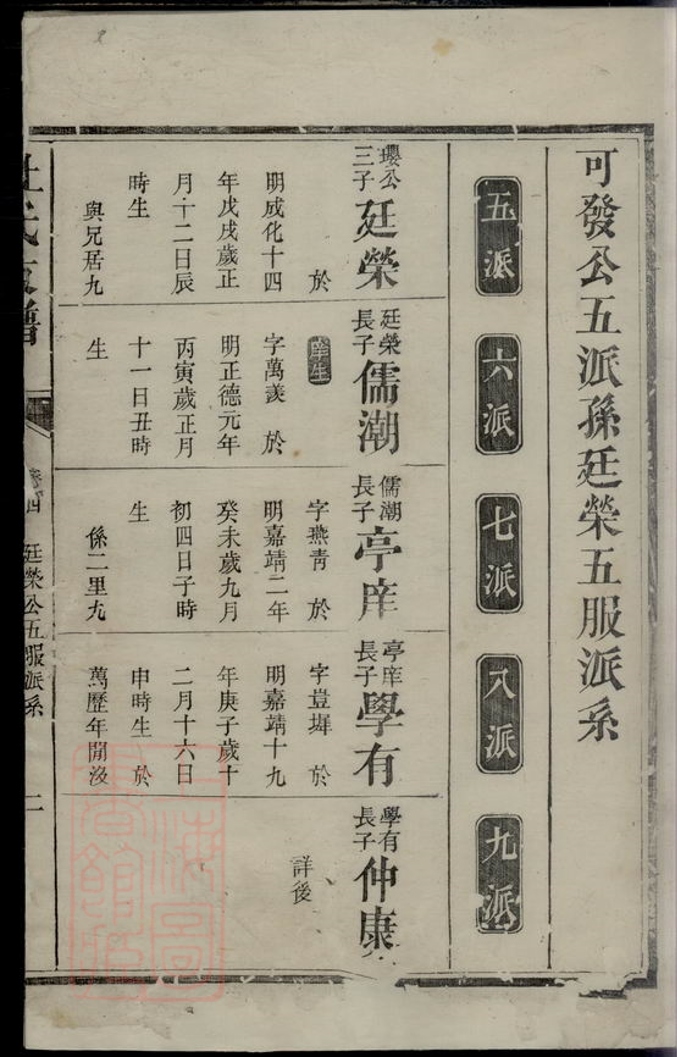 可發公五派孫廷榮五服派系
五派
六派
七派
八派
九派
瓔公
三子
廷榮
於
明成化十四
年戊戌歲正
月十二日辰
時生
與兄居九
廷榮
長子
儒潮
庠生
字萬羨 於
明正德元年
丙寅歲正月
十一日丑時
生
儒潮
長子
亭庠
字燕靑 於
明嘉靖二年
癸未歲九月
初四日子時
生
係二里九
亭庠
長子
學有
字豈墀 於
明嘉靖十九
年庚子歲十
二月十六日
申時生 於
萬歷年間沒
學有
長子
仲康
詳後
氏支譜
卷四
廷榮公五服派系
二